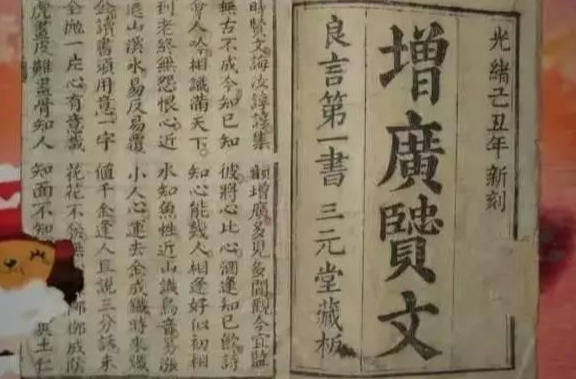 光緒己丑年新刻
增廣贒文
良言第一書 三元堂藏板
時賢文誨汝諄諄集韻增廣多見多聞觀今宜監
無古不成今知己知彼將心比心酒逢知己飲詩
會人吟相識滿天下知心能幾人相逢好似初相
到老終無怨恨心近水知魚性近山識鳥音易漲
退山溪水易反易覆小人心運去金成鐵時來鐵
金讀書須用意一字值千金逢人且說三分話未
全拋一片心有意栽花花不發無柳柳成陰
虎畫皮難畫骨知人知面不知土仁